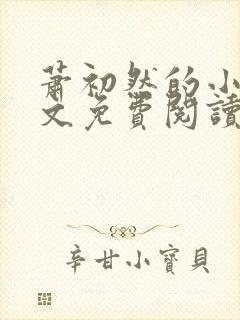 蕭初然的小
文免費閱讀
辛甘小寶貝